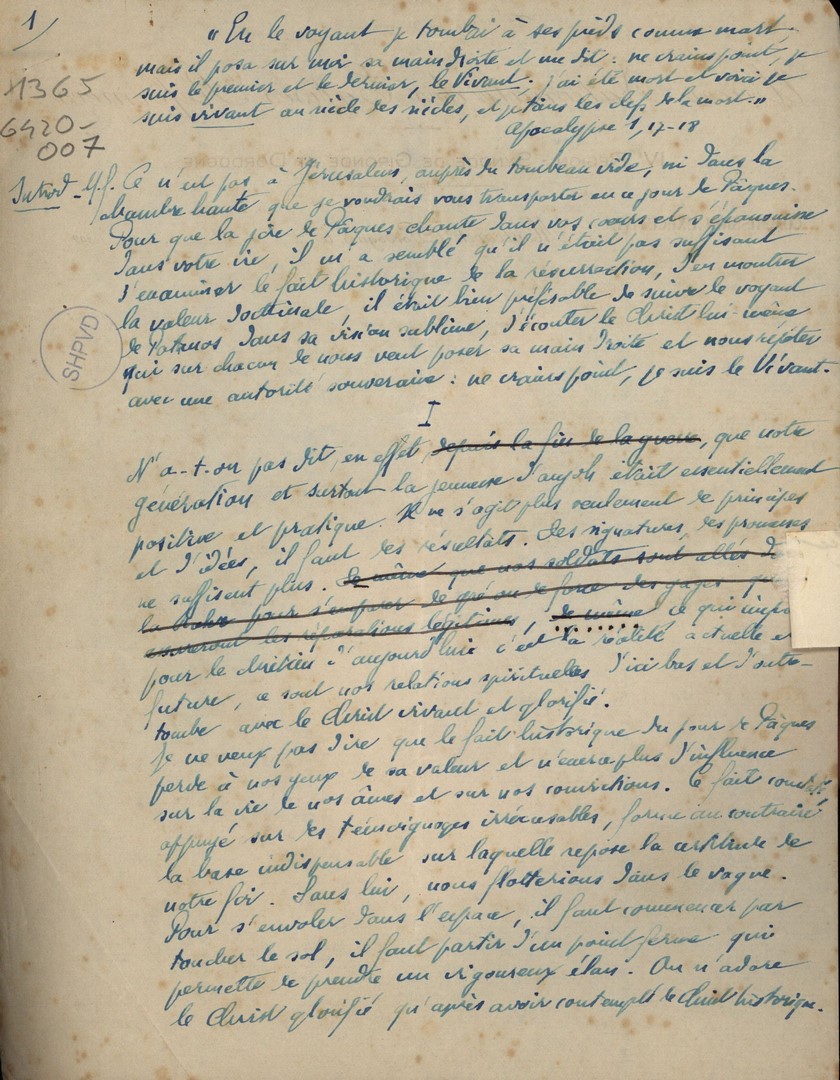 1/
« En le voyant je tombai à ses pieds comme mort,
mais il posa sur moi sa main droite et me dit : ne crains point, je
suis le premier et le dernier, le Vivant. j'ai été mort et voici je
suis vivant au siècle des siècles, et je tiens les clefs de la mort. »
Apocalypse 1, 17-18
1365
6420-
007
Introd - M.f. Ce n'est pas à Jérusalem, auprès du tombeau vide, ni dans la
chambre haute que je voudrais vous transporter en ce jour de Pâques.
Pour que la joie de Pâques chante dans vos coeurs et s'épanouisse
dans votre vie, il m'a semblé qu'il n'était pas suffisant
d'examiner le fait historique de la résurrection, d'en montrer
la valeur doctrinale, il était bien préférable de suivre le voyant
de Patmos dans sa vision sublime, d'écouter le Christ lui-même
qui sur chacun de nous veut poser sa main droite et nous répéter
avec une autorité souveraine : ne crains point, je suis le Vivant.
SHPVD
I
N'a-t-on pas dit, en effet, depuis la fin de la guerre, que notre
génération et surtout la jeunesse d'aujd. était essentiellement
positive et pratique. Il ne s'agit plus seulement de principes
et d'idées, il faut des résultats. Les signatures, les promesses
ne suffisent plus. De même que nos soldats sont allés d
la Ruhr pour s'emparer de gré ou de force des gages qu
assureront les réparations légitimes, de même ce qui impor
pour le chrétien d'aujourd'hui c'est la réalité actuelle et
future, ce sont nos relations spirituelles d'ici bas et d'outre-
tombe avec le Christ vivant et glorifié.
Je ne veux pas dire que le fait historique du jour de Pâques
perde à nos yeux de sa valeur et n'exerce plus d'influence
sur la vie de nos âmes et sur nos convictions. Ce fait
appuyé sur des témoignages irrécusables, forme au contraire
la base indispensable sur laquelle repose la certitude de
notre foi. Sans lui, nous flotterions dans le vague.
Pour s'envoler dans l'espace, il faut commencer par
toucher le sol, il faut partir d'un point ferme qui
permette de prendre un vigoureux élan. On n'adore
le Christ glorifié qu'après avoir contemplé le Christ historique.